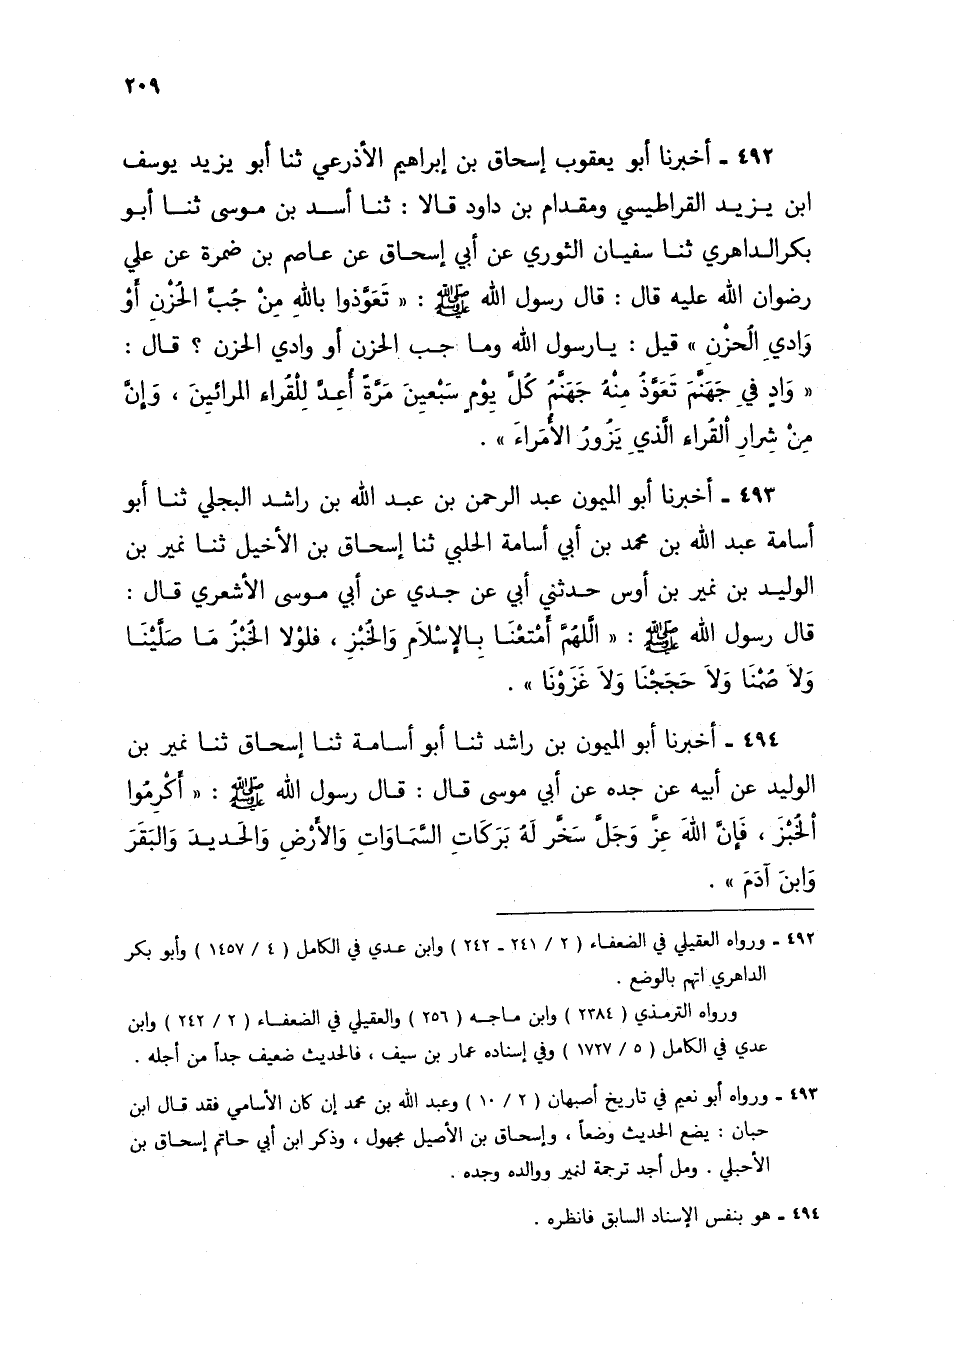 ٢٠٩
٤٩٢ ـ أخبرنا أبو يعقوب إسحاق بن إبراهيم الأذرعي ثنا أبو يزيد يوسف
ابن يزيد القراطيسي ومقدام بن داود قالا : ثنا أسد بن موسى ثنا أبو
بكرالداهري ثنا سفيان الثوري عن أبي إسحاق عن عاصم بن ضمرة عن علي
رضوان الله عليه قال : قال رسول الله ﷺ : « تَعَوَّذوا بالله مِنْ جُبِّ الحُزْنِ أَوْ
وَادِي الْحزْنِ » قيل : يارسول الله وما جب الحزن أو وادي الحزن ؟ قال :
« وَادٍ فِي جَهَنَّمَ تَعَوَّذُ مِنْهُ جَهَنَّمُ كُلَّ يوْمٍ سَبْعينَ مَرَّةً أُعِدَّ لِلْقُراء المرائينَ ، وَإنَّ
مِنْ شِرارِ ألْقُراء الَّذي يَزُورُ الأُمَراءَ » .
٤٩٣ ـ أخبرنا أبو الميمون عبد الرحمن بن عبد الله بن راشد البجلي ثنا أبو
أسامة عبد الله بن محمد بن أبي أسامة الحلبي ثنا إسحاق بن الأخيل ثنا نمير بن
الوليد بن نمير بن أوس حدثني أبي عن جدي عن أبي موسى الأشعري قال :
قال رسول الله ﷺ : « اللَّهُمَّ أَمْتِعْنَا بِالإسْلاَمِ وَالخُبْزِ ، فلوْلا الخُبْزُ مَا صَلَّيْنَا
وَلاَ صُمْنَا وَلاَ حَجَجْنَا وَلاَ غَزَوْنَا » .
٤٩٤ ـ أخبرنا أبو الميمون بن راشد ثنا أبو أسامة ثنا إسحاق ثنا نمير بن
الوليد عن أبيه عن جده عن أبي موسى قال : قال رسول الله ﷺ : « أَكْرِمُوا
ألْخُبْزَ ، فَإنَّ اللهَ عزَّ وَجَلَّ سَخَّر لَهُ بَرَكَاتِ السَّمَاوَاتِ وَالأَرْضِ وَالحَديدَ وَالبَقَرَ
وَابنَ آدَمَ » .
٤٩٢ ـ ورواه العقيلي في الضعفاء ( ٢ / ٢٤١ ـ ٢٤٢ ) وابن عدي في الكامل ( ٤ / ١٤٥٧ ) وأبو بكر
الداهري اتهم بالوضع .
ورواه الترمذي ( ٢٣٨٤ ) وابن ماجه ( ٢٥٦ ) والعقيلي في الضعفاء ( ٢ / ٢٤٢ ) وابن
عدي في الكامل ( ٥ / ١٧٢٧ ) وفي إسناده عمار بن سيف ، فالحديث ضعيف جداً من أجله .
٤٩٣ ـ ورواه أبو نعيم في تاريخ أصبهان ( ٢ / ١٠ ) وعبد الله بن محمد إن كان الأسامي فقد قال ابن
حبان : يضع الحديث وضعاً ، وإسحاق بن الأصيل مجهول ، وذكر ابن أبي حاتم إسحاق بن
الأحبلي . ومل أجد ترجمة لنمير ووالده وجده .
٤٩٤ ـ هو بنفس الإسناد السابق فانظره .